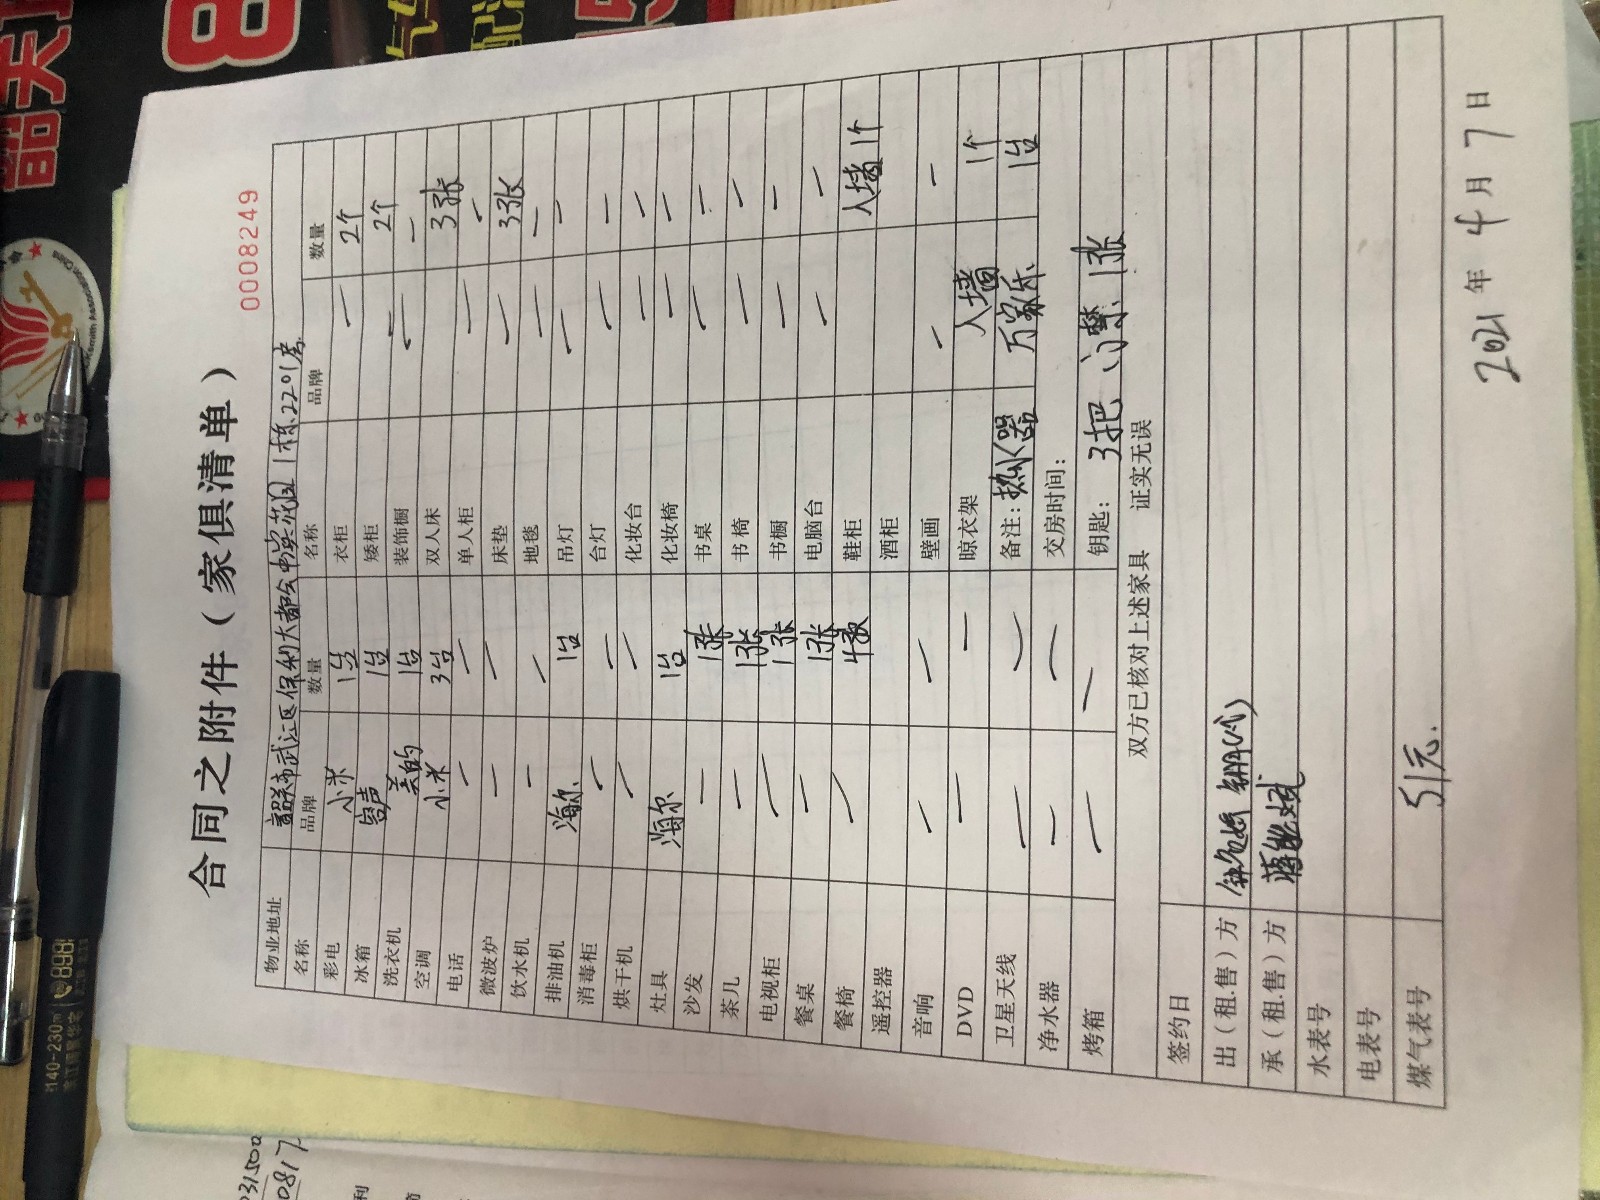 合同之附件（家俱清单）
0008249
物业地址 韶关市武江区保利大都会中央花园1栋2201房
名称 品牌 数量 名称 品牌 数量
彩电 小米 1台 衣柜 — 2个
冰箱 容声 1台 矮柜 2个
洗衣机 美的 1台 装饰橱 — —
空调 小米 3台 双人床 3张
电话 — — 单人柜 — —
微波炉 — — 床垫 — 3张
饮水机 — — 地毯 — —
排油机 海尔 1台 吊灯 — —
消毒柜 — — 台灯 — —
烘干机 — — 化妆台 — —
灶具 海尔 1台 化妆椅 — —
沙发 — 1张 书桌 — —
茶几 — 1张 书椅 — —
电视柜 — 1张 书橱 — —
餐桌 — 1张 电脑台 — —
餐椅 — 4张 鞋柜 入墙1个
遥控器 酒柜
音响 — — 壁画 — —
DVD — — 晾衣架 入墙 1个
卫星天线 — — 备注：热水器 万家乐 1台
净水器 — — 交房时间：
烤箱 — — 钥匙： 3把、门禁1张
双方已核对上述家具 证实无误
签约日
出（租.售）方
承（租.售）方
水表号
电表号
煤气表号 51元.
2021年4月7日
140-230㎡
0817